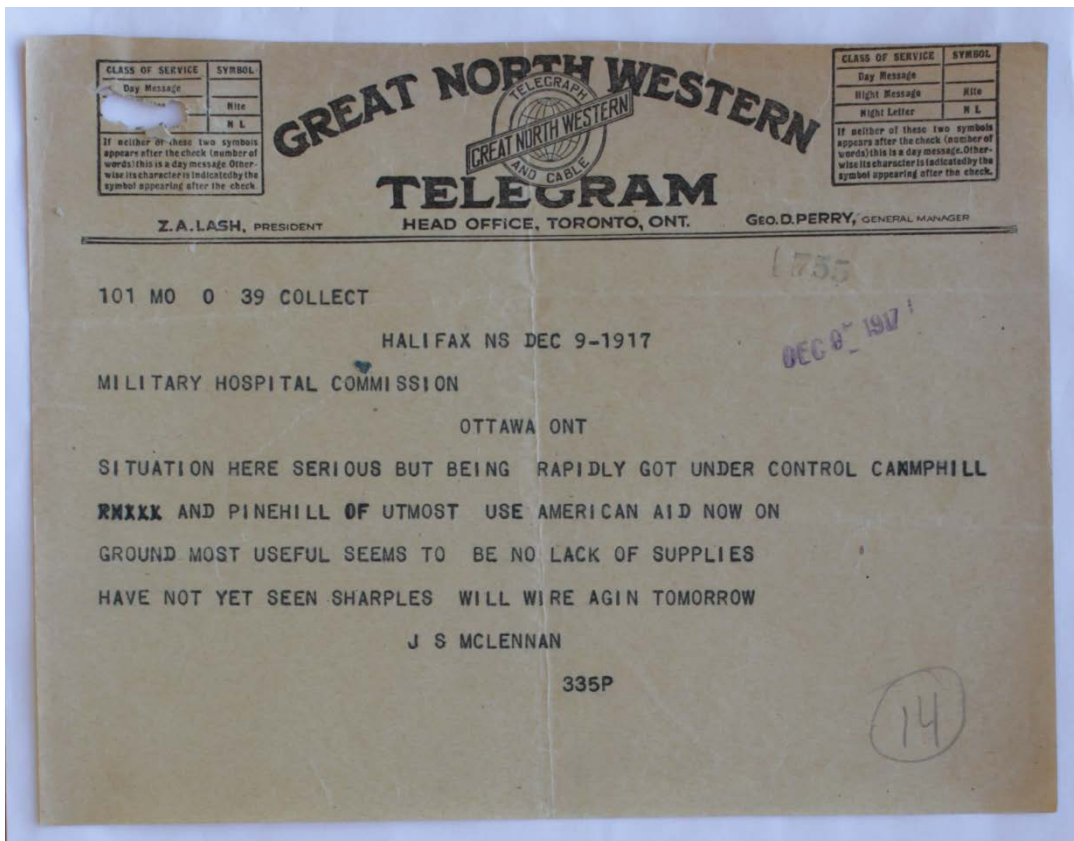 CLASS OF SERVICE SYMBOL
Day Message
Nite
N L
If neither of these two symbols
appears after the check (number of
words) this is a day message. Other-
wise its character is indicated by the
symbol appearing after the check.
GREAT NORTH WESTERN
TELEGRAPH
GREAT NORTH WESTERN
AND CABLE
TELEGRAM
CLASS OF SERVICE SYMBOL
Day Message
Night Message Nite
Night Letter N L
If neither of these two symbols
appears after the check (number of
words) this is a day message. Other-
wise its character is indicated by the
symbol appearing after the check.
Z.A. LASH, PRESIDENT
HEAD OFFICE, TORONTO, ONT.
GEO. D. PERRY, GENERAL MANAGER
1755
101 MO 0 39 COLLECT
HALIFAX NS DEC 9-1917
DEC 9 1917
MILITARY HOSPITAL COMMISSION
OTTAWA ONT
SITUATION HERE SERIOUS BUT BEING RAPIDLY GOT UNDER CONTROL CAMPHILL
AND PINEHILL OF UTMOST USE AMERICAN AID NOW ON
GROUND MOST USEFUL SEEMS TO BE NO LACK OF SUPPLIES
HAVE NOT YET SEEN SHARPLES WILL WIRE AGIN TOMORROW
J S MCLENNAN
335P
14